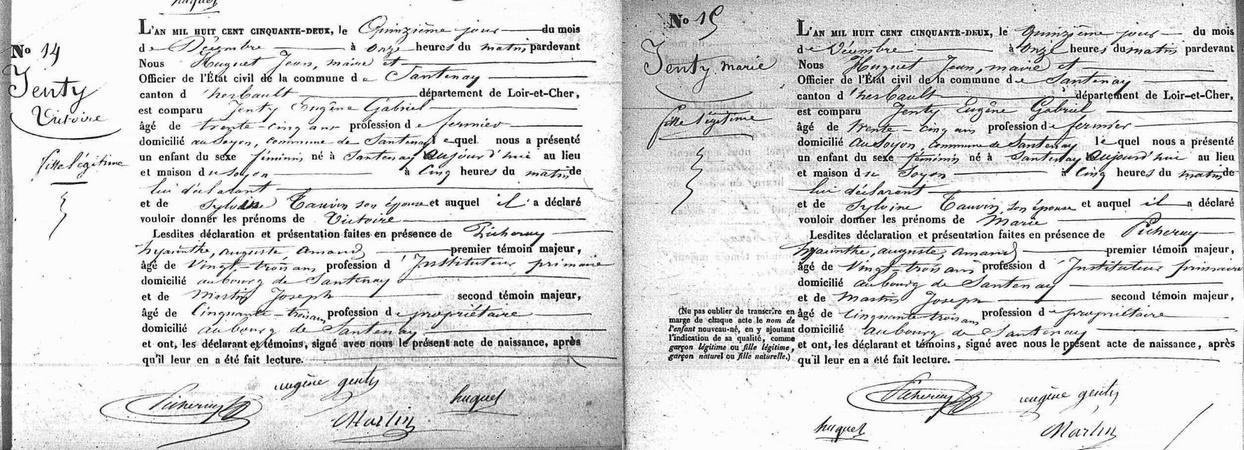 huguet
No 14
Jenty
Victoire
fille légitime
L'AN MIL HUIT CENT CINQUANTE-DEUX, le Quinzième jour du mois
de Décembre à Onze heures du matin pardevant
Nous Huguet Jean, maire et
Officier de l'État civil de la commune de Santenay
canton d'herbault département de Loir-et-Cher,
est comparu Jenty Eugène Gabriel
âgé de trente-cinq ans profession de fermier
domicilié au Soyon, commune de Santenay lequel nous a présenté
un enfant du sexe féminin né à Santenay aujourd'hui au lieu
et maison du Soyon à Cinq heures du matin de
lui déclarant
et de Sylvine Cauvin son épouse et auquel il a déclaré
vouloir donner les prénoms de Victoire
Lesdites déclaration et présentation faites en présence de Picheruy
hyacinthe, auguste, amand premier témoin majeur,
âgé de Vingt-trois ans profession d'Instituteur primaire
domicilié au bourg de Santenay
et de Martin Joseph second témoin majeur,
âgé de Cinquante-trois ans profession de propriétaire
domicilié au bourg de Santenay
et ont, les déclarant et témoins, signé avec nous le présent acte de naissance, après
qu'il leur en a été fait lecture.
Picheruy
eugène genty
Martin
huguet
No 15
Jenty marie
fille légitime
L'AN MIL HUIT CENT CINQUANTE-DEUX, le Quinzième jour du mois
de Décembre à Onze heures du matin pardevant
Nous Huguet Jean, maire et
Officier de l'État civil de la commune de Santenay
canton d'herbault département de Loir-et-Cher,
est comparu Jenty Eugène Gabriel
âgé de trente-cinq ans profession de fermier
domicilié au Soyon, commune de Santenay lequel nous a présenté
un enfant du sexe féminin né à Santenay aujourd'hui au lieu
et maison du Soyon à Cinq heures du matin de
lui déclarent
et de Sylvine Cauvin son épouse et auquel il a déclaré
vouloir donner les prénoms de Marie
Lesdites déclaration et présentation faites en présence de Picheruy
hyacinthe, auguste, amand premier témoin majeur,
âgé de Vingt-trois ans profession d'Instituteur primaire
domicilié au bourg de Santenay
et de Martin Joseph second témoin majeur,
âgé de Cinquante-trois ans profession de propriétaire
domicilié au bourg de Santenay
et ont, les déclarant et témoins, signé avec nous le présent acte de naissance, après
qu'il leur en a été fait lecture.
(Ne pas oublier de transcrire en
marge de chaque acte le nom de
l'enfant nouveau-né, en y ajoutant
l'indication de sa qualité, comme
garçon légitime ou fille légitime,
garçon naturel ou fille naturelle.)
Picheruy
eugène genty
huguet
Martin